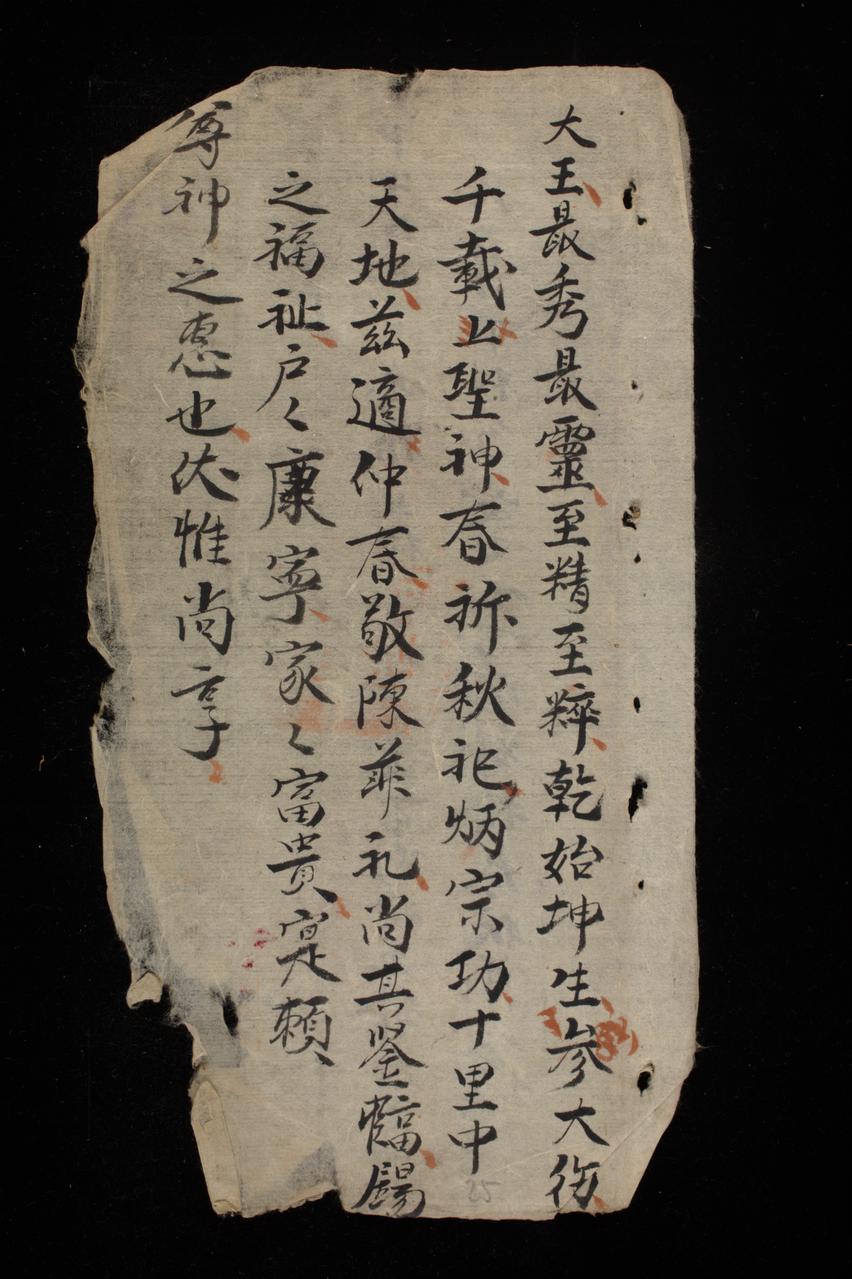 大王最秀最靈至精至粹乾始坤生參大
千載上聖神春祈秋祀炳宗功十里中
天地茲適仲春敬陳菲礼尚其鉴錫
之福祉户々康寧家々富貴寔頼
尊神之惠也伏惟尚享
25